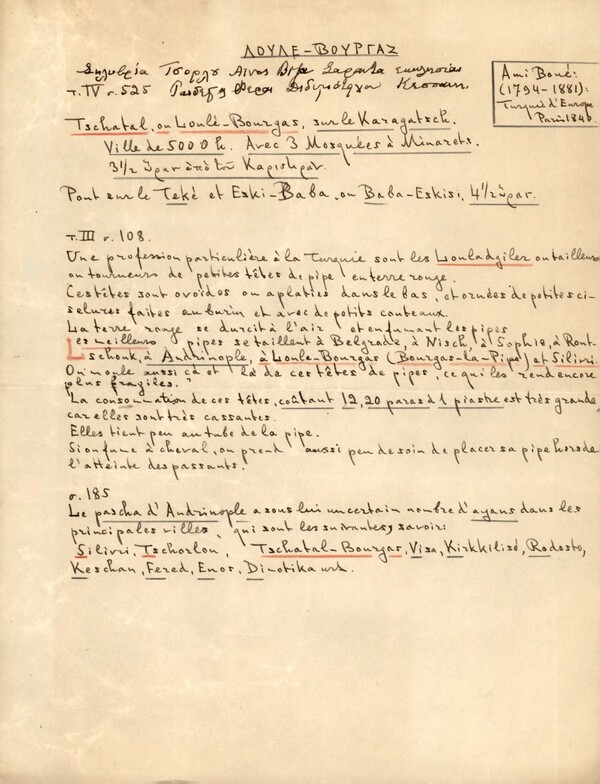 ΛΟΥΛΕ-ΒΟΥΡΓΑΖ
Σηλυβρία Τσορλου Αίνος Βιζα Σαράντα εκκλησίαι
τ. IV σ. 525 Ραιδεστός Φεραι Διδυμότειχον Κεσσάνη
Ami Boué:
(1794-1881):
Turquie d'Europe
Paris 1840
Tschatal, ou Loulé-Bourgas, sur le Karagatsch.
Ville de 5000 h. Avec 3 Mosquées à Minarets.
3 1/2 ὥρας ἀπὸ τοῦ Καριστηράν.
Pont sur le Teké et Eski-Baba, ou Baba-Eskisi, 4 1/2 ὥρας.
τ. III σ. 108.
Une profession particulière à la Turquie sont les Louladgiler ou tailleurs
ou tourneurs de petites têtes de pipe en terre rouge.
Ces têtes sont ovoïdes ou aplaties dans le bas, et ornées de petites ci-
selures faites au burin et avec de petits couteaux.
La terre rouge se durcit à l'air et en fumant les pipes
Les meilleurs pipes se taillent à Belgrade, à Nisch, à Sophie, à Rout-
schouk, à Andrinople, à Loule-Bourgas (Bourgas-la-Pipe) et Silivri.
On moule aussi çà et là de ces têtes de pipes, ce qui les rend encore
plus fragiles."
"La consommation de ces têtes, coûtant 12, 20 paras à 1 piastre est très grande
car elles sont très cassantes.
Elles tient peu au tube de la pipe.
Si on fume à cheval, on prend aussi peu de soin de placer sa pipe hors de
l'atteinte des passants."
σ. 185
Le pascha d'Andrinople a sous lui un certain nombre d'ayans dans les
principales villes, qui sont les suivantes, savoir:
Silivri, Tschorlou, Tschatal-Bourgas, Visa, Kirkkilisé, Rodosto,
Keschan, Fered, Enos, Dimotika